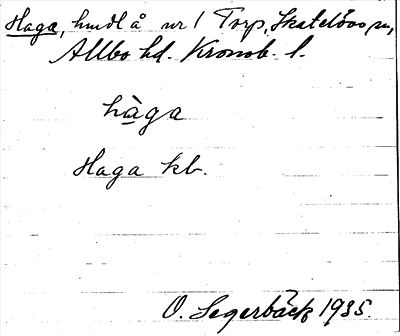 Haga, hmdl å nr 1 Torp, Skatelövs sn,
Allbo hd. Kronob. l.
hàga
Haga kb.
O. Segerbäck 1935.